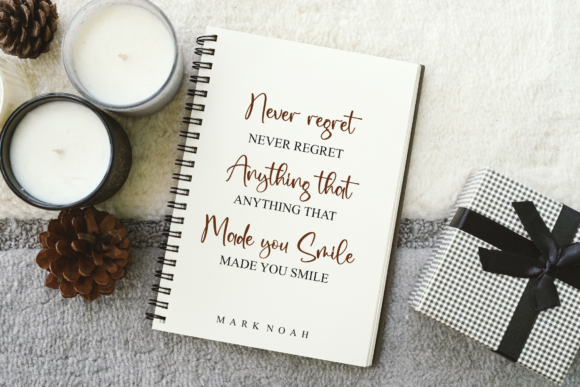 Never regret
NEVER REGRET
Anything that
ANYTHING THAT
Made you Smile
MADE YOU SMILE
MARK NOAH